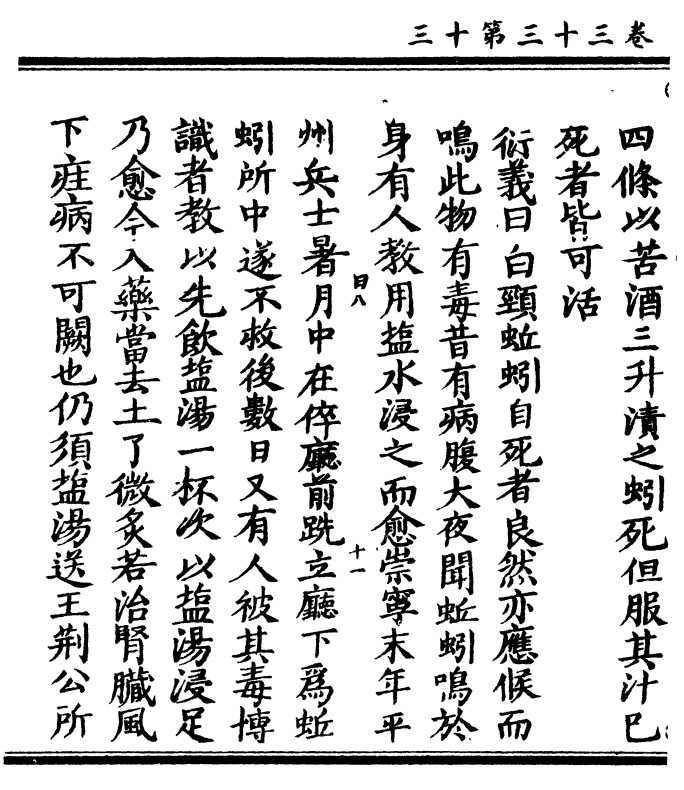 卷三十三第十三
四條以苦酒三升漬之蚓死但服其汁巳
死者皆可活
衍義曰白頸蚯蚓自死者良然亦應候而
鳴此物有毒昔有病腹大夜聞蚯蚓鳴於
身有人教用塩水浸之而愈崇寧末年平
日八
十一
州兵士暑月中在倅廳前跣立廳下為蚯
蚓所中遂不救後數日又有人被其毒博
識者教以先飲塩湯一杯次以塩湯浸足
乃愈今入藥當去土了微炙若治腎臟風
下疰病不可闕也仍須塩湯送王荆公所